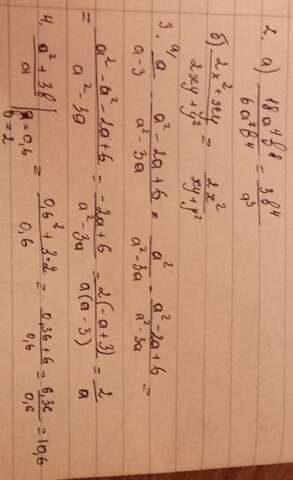 2. а) 18a⁴b⁸/6a⁷b⁴ = 3b⁴/a³
б) (2x²+xy)/(2xy+y²) = 2x²/(xy+y²)
3. а) a/(a-3) - (a²-2a+6)/(a²-3a) = a²/(a²-3a) - (a²-2a+6)/(a²-3a) =
= (a²-a²-2a+6)/(a²-3a) = (-2a+6)/(a²-3a) = 2(-a+3)/a(a-3) = 2/a
4. (a²+3b)/a | a=0,6 b=2 = (0,6²+3·2)/0,6 = (0,36+6)/0,6 = 6,36/0,6 = 10,6